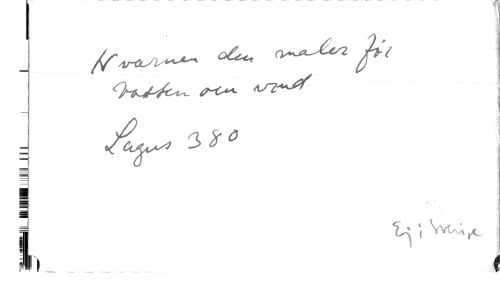 Kvarnen den maler för
vatten och vind
Lagus 380
Ej i Sverige